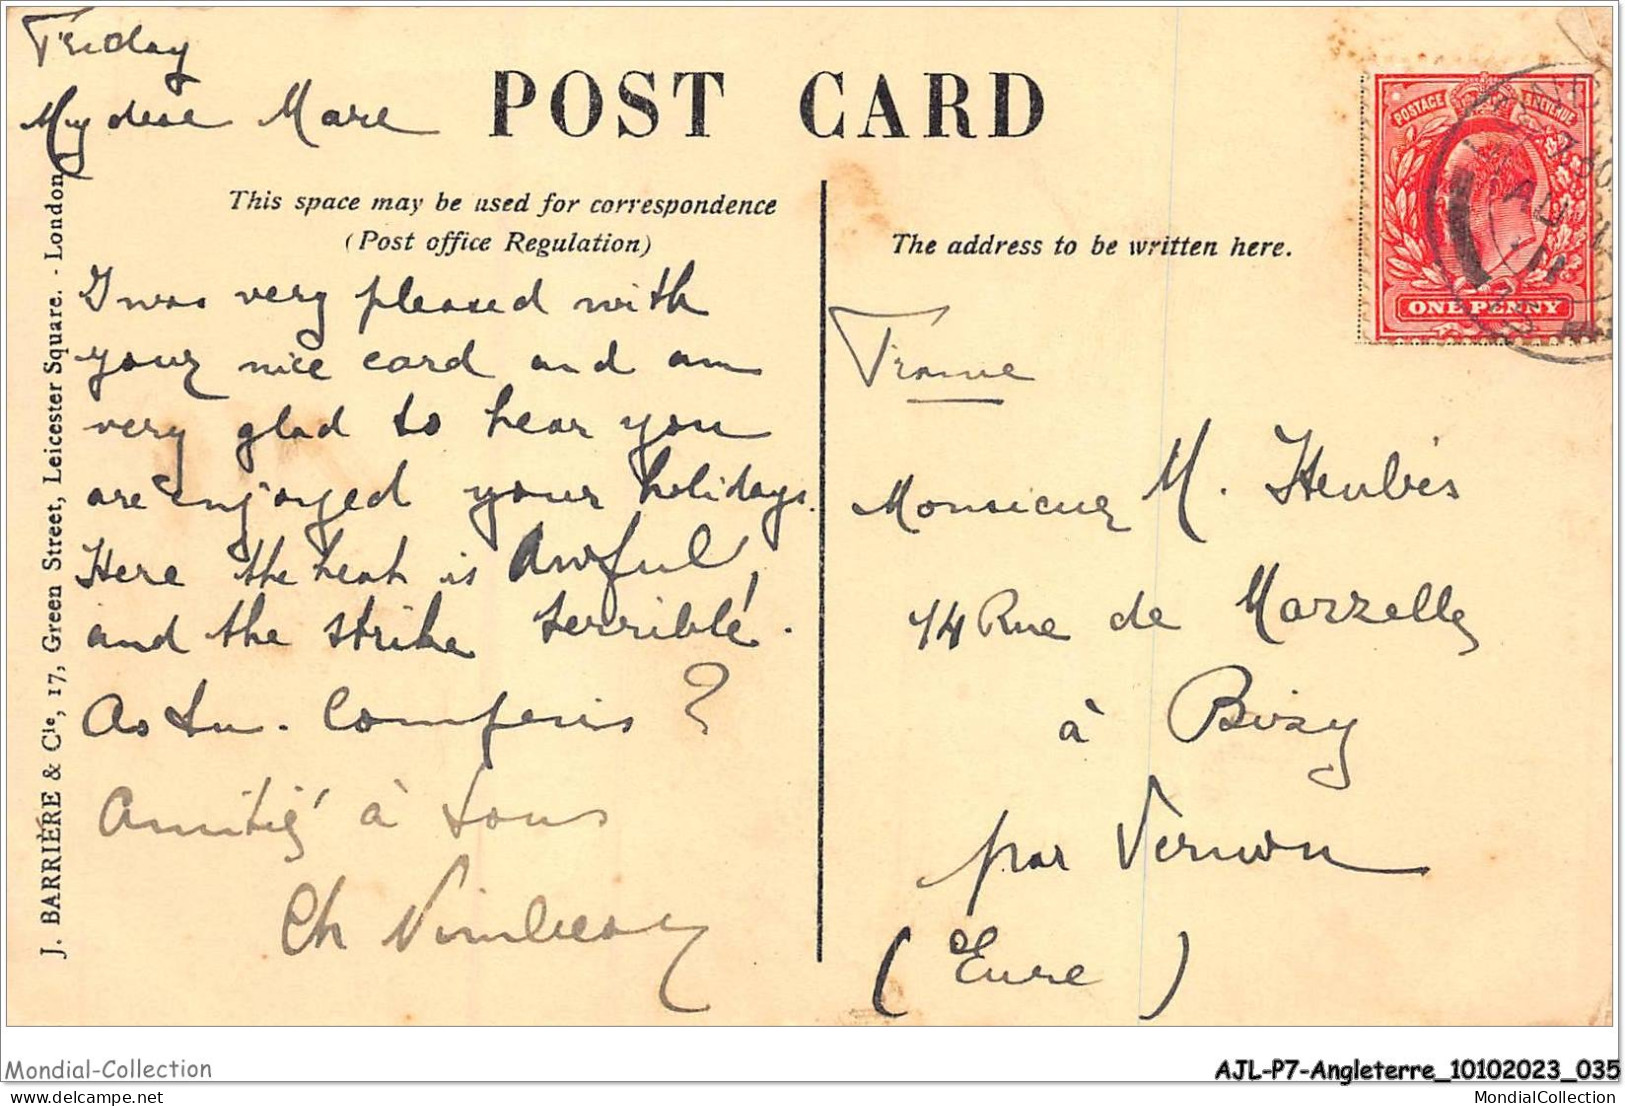 Friday
My dear Marc
POST CARD
This space may be used for correspondence
(Post office Regulation)
The address to be written here.
J. BARRIÈRE & Cie, 17, Green Street, Leicester Square. - London
I was very pleased with
your nice card and am
very glad to hear you
are enjoyed your holidays.
Here the heat is awful,
and the strike terrible.
As tu. Compris ?
Amitié à tous
Ch
POSTAGE REVENUE
ONE PENNY
7.30
AU
11
France
Monsieur M.
14 Rue de
à Bizy
par Vernon
(Eure)
Mondial-Collection
AJL-P7-Angleterre_10102023_035
MondialCollection